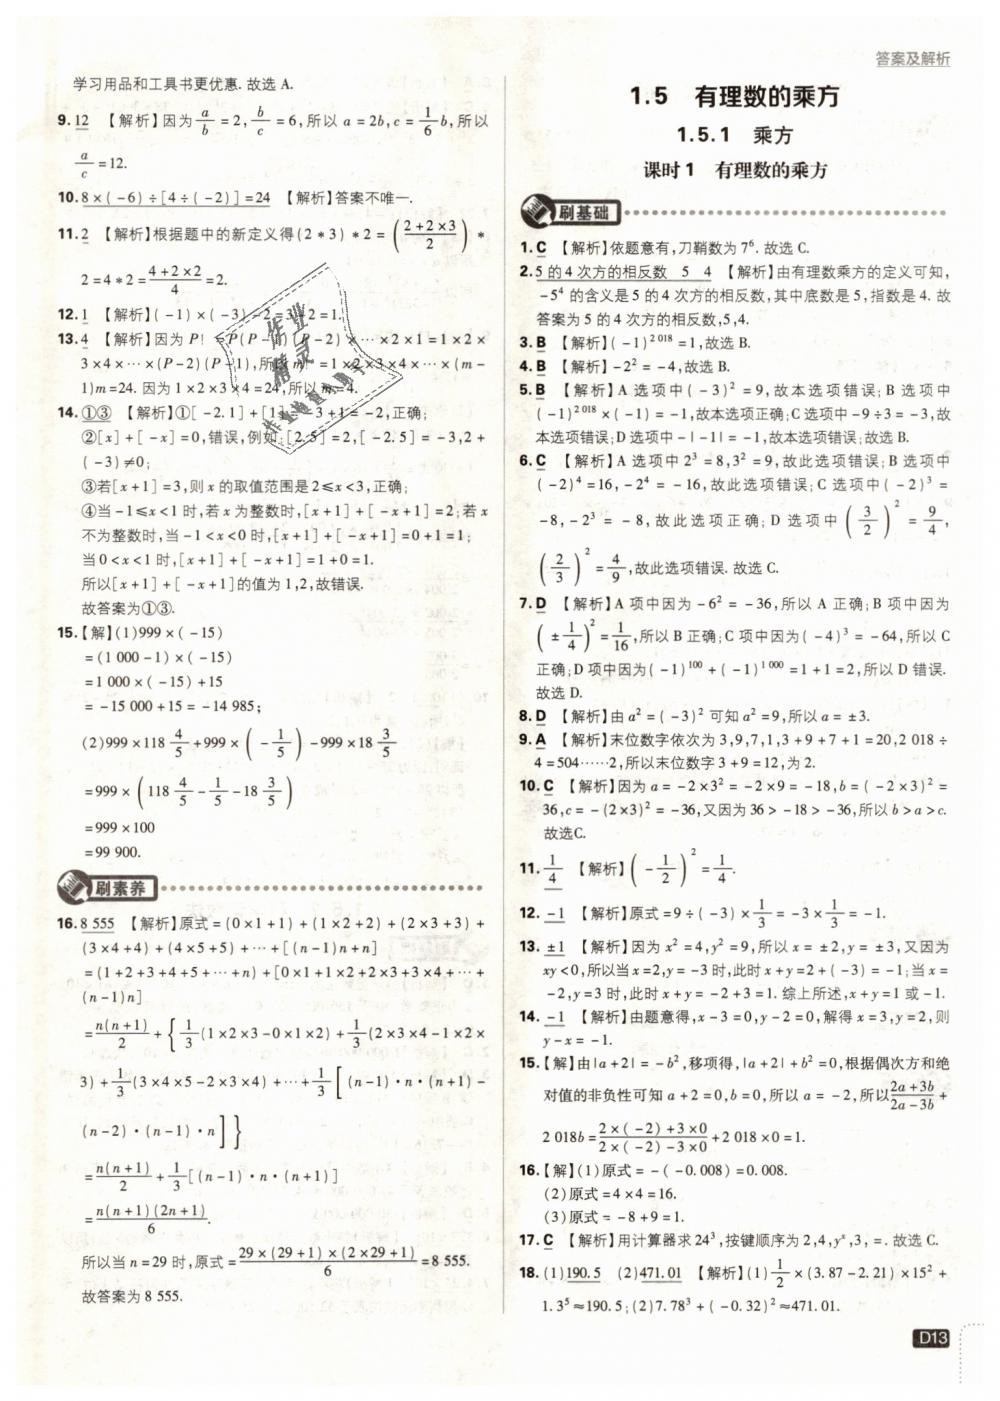 答案及解析
学习用品和工具书更优惠. 故选 A.
9. 12 【解析】因为 a/b = 2, b/c = 6, 所以 a = 2b, c = 1/6 b, 所以
a/c = 12.
10. 8×(-6)÷[4÷(-2)]=24 【解析】答案不唯一.
11. 2 【解析】根据题中的新定义得(2*3)*2 = ((2+2×3)/2) *
2 = 4*2 = (4+2×2)/4 = 2.
12. 1 【解析】(-1)×(-3)-2=3-2=1.
13. 4 【解析】因为 P! = P(P-1)(P-2)×…×2×1=1×2×
3×4×…×(P-2)(P-1), 所以 m! =1×2×3×4×…×(m-
1)m=24. 因为 1×2×3×4=24, 所以 m=4.
14. ①③ 【解析】①[-2.1]+[1]=-3+1=-2, 正确;
②[x]+[-x]=0, 错误, 例如, [2.5]=2, [-2.5]=-3, 2+
(-3)≠0;
③若[x+1]=3, 则 x 的取值范围是 2≤x<3, 正确;
④当 -1≤x<1 时, 若 x 为整数时, [x+1]+[-x+1]=2; 若 x
不为整数时, 当 -1<x<0 时, [x+1]+[-x+1]=0+1=1;
当 0<x<1 时, [x+1]+[-x+1]=1+0=1.
所以[x+1]+[-x+1]的值为 1, 2, 故错误.
故答案为①③.
15.【解】(1)999×(-15)
=(1 000-1)×(-15)
=1 000×(-15)+15
=-15 000+15=-14 985;
(2)999×118 4/5 +999×(-1/5)-999×18 3/5
=999×(118 4/5 - 1/5 - 18 3/5)
=999×100
=99 900.
刷素养
16. 8 555 【解析】原式=(0×1+1)+(1×2+2)+(2×3+3)+
(3×4+4)+(4×5+5)+…+[(n-1)n+n]
=(1+2+3+4+5+…+n)+[0×1+1×2+2×3+3×4+…+
(n-1)n]
= n(n+1)/2 + { 1/3(1×2×3-0×1×2)+ 1/3(2×3×4-1×2×
3)+ 1/3(3×4×5-2×3×4)+…+ 1/3 [ (n-1)·n·(n+1)-
(n-2)·(n-1)·n ] }
= n(n+1)/2 + 1/3 [(n-1)·n·(n+1)]
= n(n+1)(2n+1)/6.
所以当 n=29 时, 原式= 29×(29+1)×(2×29+1)/6 =8 555.
故答案为 8 555.
1.5 有理数的乘方
1.5.1 乘方
课时1 有理数的乘方
刷基础
1. C 【解析】依题意有, 刀鞘数为 7⁶. 故选 C.
2. 5 的 4 次方的相反数 5 4 【解析】由有理数乘方的定义可知,
-5⁴ 的含义是 5 的 4 次方的相反数, 其中底数是 5, 指数是 4. 故
答案为 5 的 4 次方的相反数, 5, 4.
3. B 【解析】(-1)²⁰¹⁸=1, 故选 B.
4. B 【解析】-2²=-4, 故选 B.
5. B 【解析】A 选项中(-3)²=9, 故本选项错误; B 选项中
(-1)²⁰¹⁸×(-1)=-1, 故本选项正确; C 选项中 -9÷3=-3, 故
本选项错误; D 选项中 -|-1|=-1, 故本选项错误. 故选 B.
6. C 【解析】A 选项中 2³=8, 3²=9, 故此选项错误; B 选项中
(-2)⁴=16, -2⁴=-16, 故此选项错误; C 选项中(-2)³=
-8, -2³=-8, 故此选项正确; D 选项中 (3/2)² = 9/4,
(2/3)² = 4/9, 故此选项错误. 故选 C.
7. D 【解析】A 项中因为 -6²=-36, 所以 A 正确; B 项中因为
(±1/4)² = 1/16, 所以 B 正确; C 项中因为(-4)³=-64, 所以 C
正确; D 项中因为(-1)¹⁰⁰+(-1)¹⁰⁰⁰=1+1=2, 所以 D 错误.
故选 D.
8. D 【解析】由 a²=(-3)² 可知 a²=9, 所以 a=±3.
9. A 【解析】末位数字依次为 3, 9, 7, 1, 3+9+7+1=20, 2 018÷
4=504……2, 所以末位数字 3+9=12, 为 2.
10. C 【解析】因为 a=-2×3²=-2×9=-18, b=(-2×3)²=
36, c=-(2×3)²=-36, 又因为 36>-18>-36, 所以 b>a>c.
故选C.
11. 1/4 【解析】(-1/2)² = 1/4.
12. -1 【解析】原式=9÷(-3)× 1/3 =-3× 1/3 =-1.
13. ±1 【解析】因为 x²=4, y²=9, 所以 x=±2, y=±3, 又因为
xy<0, 所以当 x=2, y=-3 时, 此时 x+y=2+(-3)=-1; 当 x=
-2, y=3 时, 此时 x+y=-2+3=1. 综上所述, x+y=1 或 -1.
14. -1 【解析】由题意得, x-3=0, y-2=0, 解得 x=3, y=2, 则
y-x=-1.
15.【解】由|a+2|=-b², 移项得, |a+2|+b²=0, 根据偶次方和绝
对值的非负性可知 a+2=0, b=0, 所以 a=-2, 所以 (2a+3b)/(2a-3b) +
2 018b= (2×(-2)+3×0)/(2×(-2)-3×0) +2 018×0=1.
16.【解】(1)原式=-(-0.008)=0.008.
(2)原式=4×4=16.
(3)原式=-8+9=1.
17. C 【解析】用计算器求 24³, 按键顺序为 2, 4, yˣ, 3, =. 故选 C.
18. (1)190.5 (2)471.01 【解析】(1) 1/2 ×(3.87-2.21)×15²+
1.3⁵≈190.5; (2)7.78³+(-0.32)²≈471.01.
D13
作业
精灵